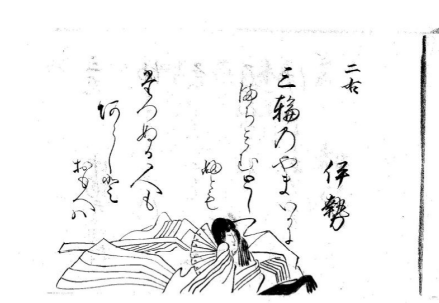 二右
伊勢
三輪のやまいかに
まちみむとし
ふとも
たつぬる人も
あらしと
おもへは